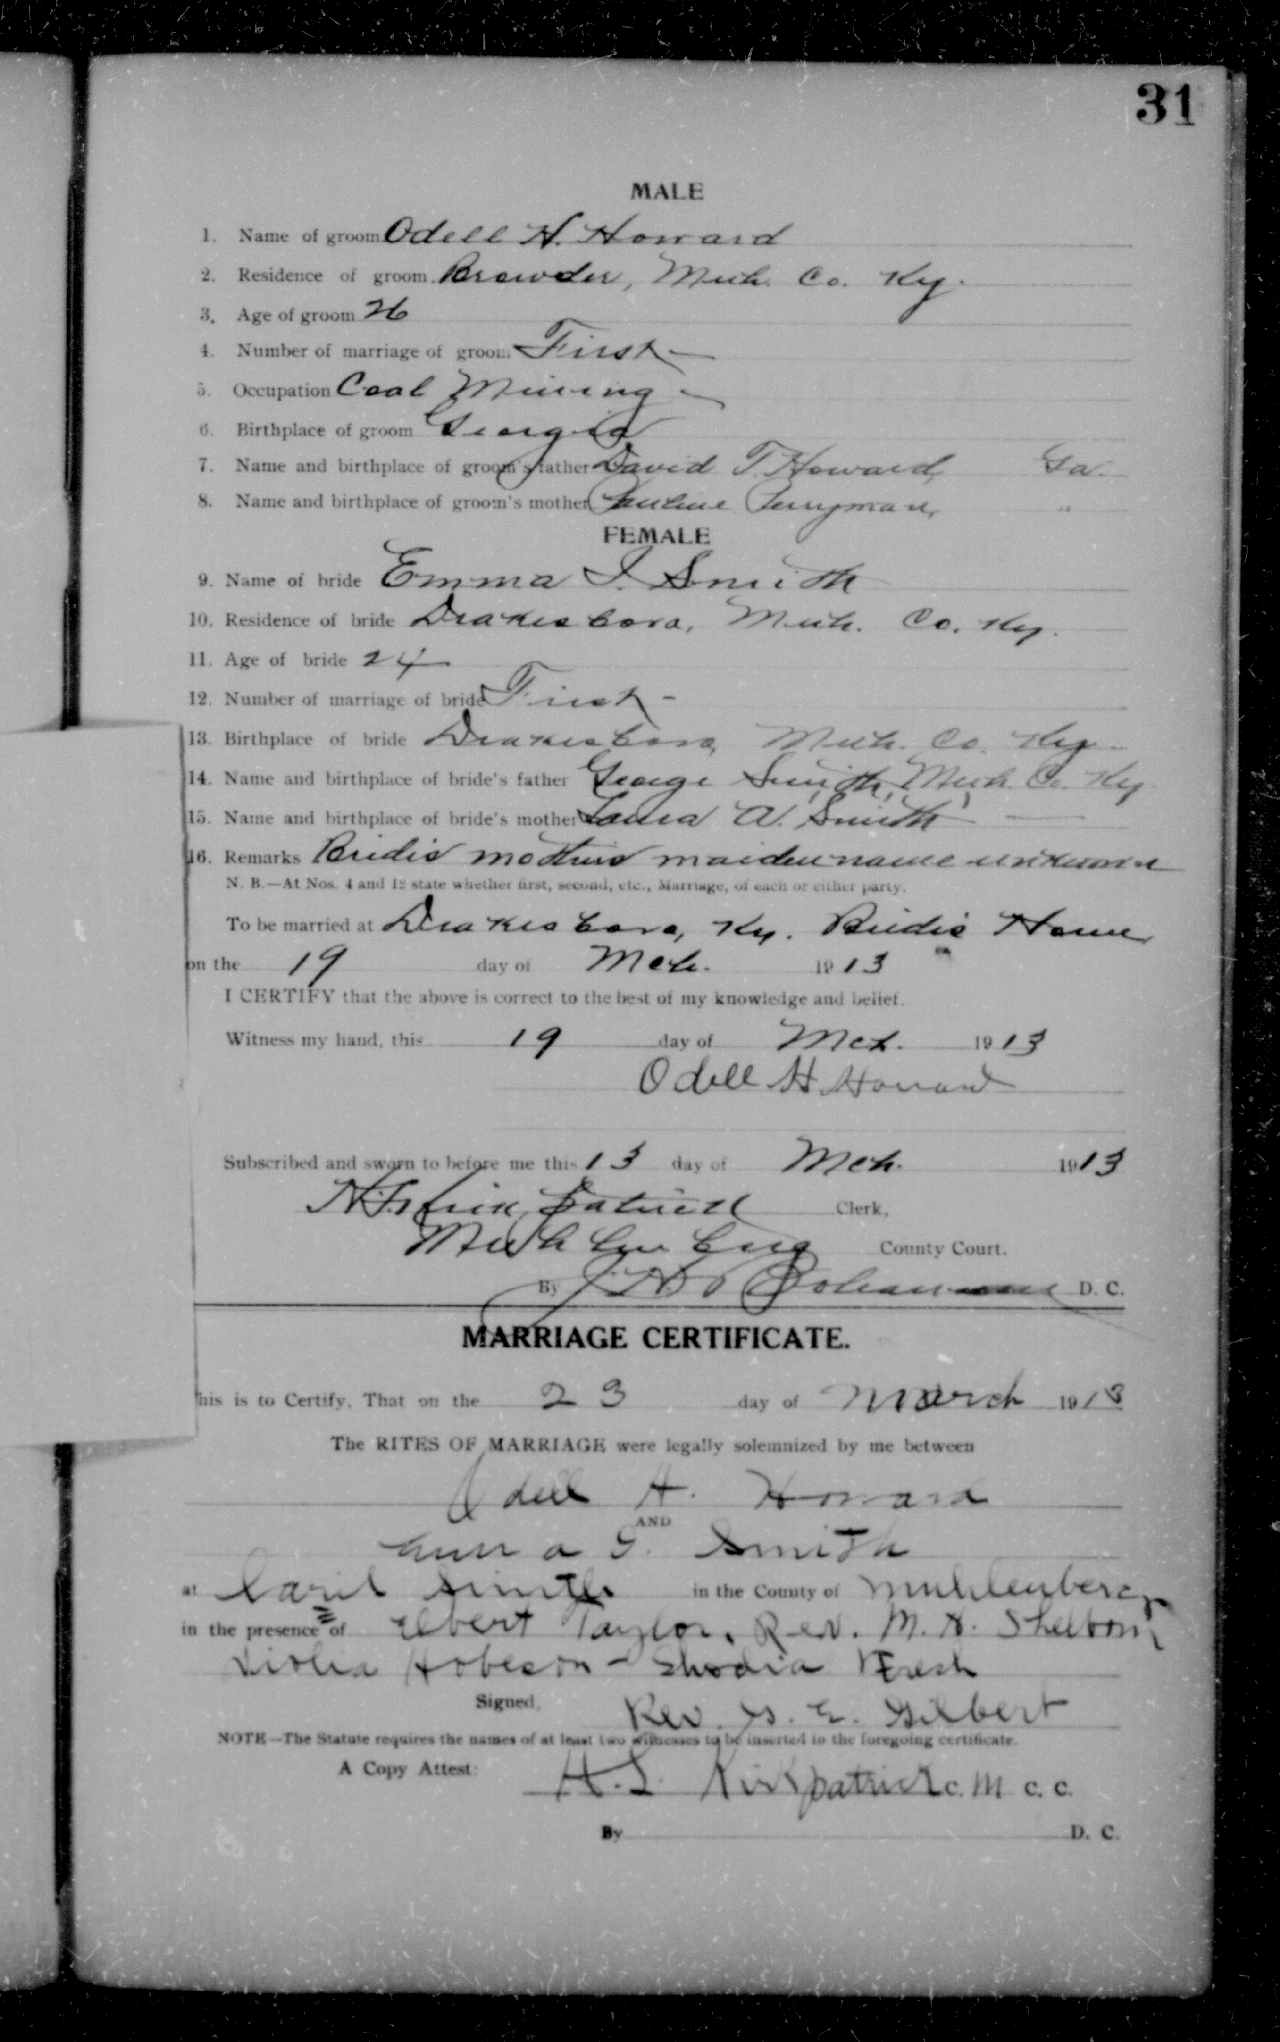 31
MALE
1. Name of groom Odell H. Howard
2. Residence of groom Browder, Muh. Co. Ky.
3. Age of groom 26
4. Number of marriage of groom First
5. Occupation Coal Mining
6. Birthplace of groom Georgia
7. Name and birthplace of groom's father David T. Howard, Ga.
8. Name and birthplace of groom's mother Perryman, "
FEMALE
9. Name of bride Emma I. Smith
10. Residence of bride Drakesboro, Muh. Co. Ky.
11. Age of bride 24
12. Number of marriage of bride First
13. Birthplace of bride Drakesboro, Muh. Co. Ky.
14. Name and birthplace of bride's father George Smith, Muh. Co. Ky
15. Name and birthplace of bride's mother Laura A. Smith
16. Remarks Bride's mothers maiden name unknown
N. B.—At Nos. 4 and 12 state whether first, second, etc., Marriage, of each or either party.
To be married at Drakesboro, Ky. Bride's Home
on the 19 day of Mch. 1913
I CERTIFY that the above is correct to the best of my knowledge and belief.
Witness my hand, this 19 day of Mch. 1913
Odell H Howard
Subscribed and sworn to before me this 13 day of Mch. 1913
Kirkpatrick Clerk,
Muhlenberg County Court.
By D. C.
MARRIAGE CERTIFICATE.
his is to Certify, That on the 23 day of March 1913
The RITES OF MARRIAGE were legally solemnized by me between
Odell H. Howard
AND
Emma G. Smith
at in the County of Muhlenberg
in the presence of Elbert Taylor, Rev. M. H.
Hobeson -
Signed, Rev. G. E. Gilbert
NOTE—The Statute requires the names of at least two witnesses to be inserted in the foregoing certificate.
A Copy Attest: H. L. Kirkpatrick C. M C. C.
By D. C.